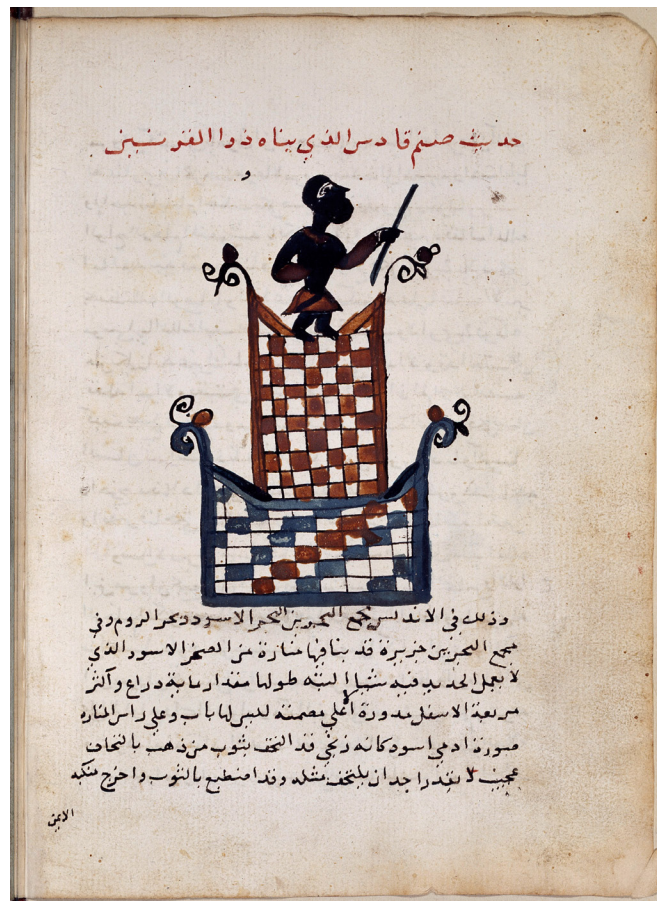 حديث صنم قادس الذي بناه ذوا القرنين
وذلك في الاندلس بمجمع البحرين البحر الاسود وبحر الروم وفي
مجمع البحرين جزيرة قد بنا فيها منارة من الصخر الاسود الذي
لا يعمل الحديد فيه شيا البته طولها مقدار ماية دراع وآكثر
مربعة الاسفل مدورة آعلي مصمته لليس لها باب وعلي راس المناره
صورة ادمي اسود كانه زنجي قد التحف بثوب من ذهب بالتحاف
عجيب لا يقدر احد ان يلتحف مثله وقد اضطبع بالثوب واخرج منكبه
الايمن